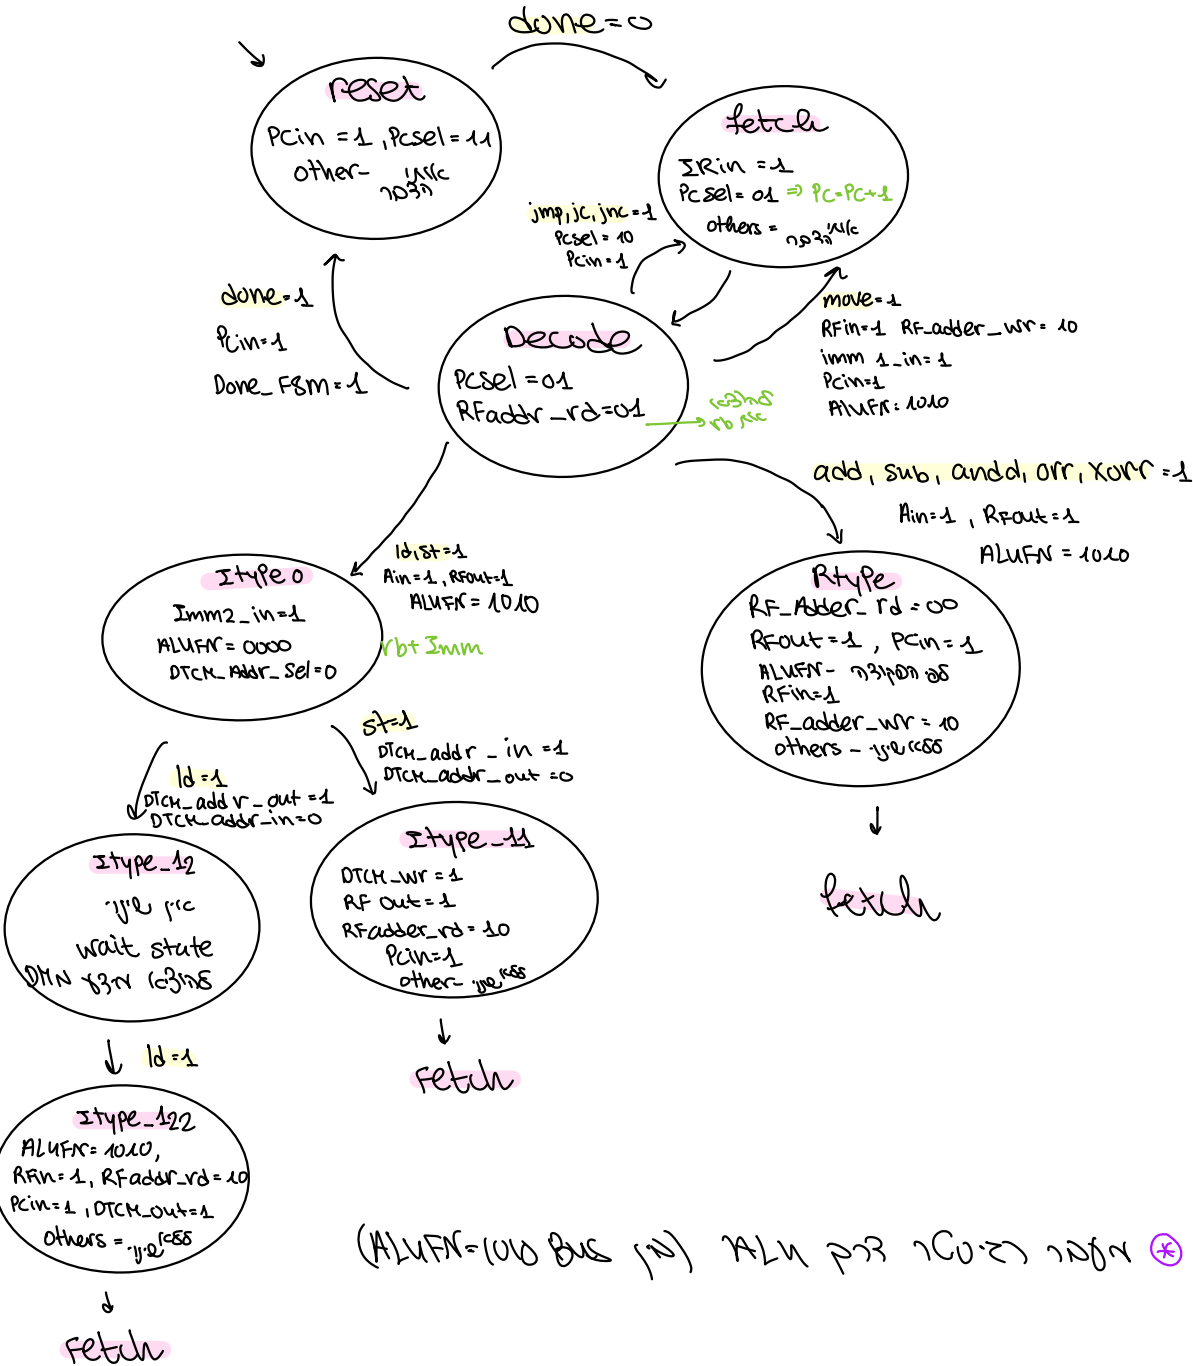 done=0
reset
PCin = 1 , Pcsel = 11
other-
fetch
IRin = 1
Pcsel = 01 => PC=PC+1
others =
jmp, jc, jnc = 1
Pcsel = 10
Pcin = 1
done = 1
Pcin = 1
Done_FSM = 1
Decode
PCsel = 01
RFaddr_rd = 01
rb את
move = 1
RFin=1 RF_adder_wr = 10
imm 1_in = 1
Pcin=1
ALUFN = 1010
add, sub, andd, orr, xorr = 1
Ain=1 , RFout=1
ALUFN = 1010
ld, st = 1
Ain=1 , RFout=1
ALUFN = 1010
Itype 0
Imm2_in=1
ALUFN = 0000
DTCM_Addr_Sel=0
rb+Imm
Rtype
RF_Adder_rd = 00
RFout = 1 , PCin = 1
ALUFN - לפי הפקודה
RFin=1
RF_adder_wr = 10
others - ללא שינוי
fetch
st=1
DTCM_addr_in = 1
DTCM_addr_out = 0
ld = 1
DTCM_addr_out = 1
DTCM_addr_in = 0
Itype_11
DTCM_wr = 1
RF out = 1
RFadder_rd = 10
Pcin = 1
other- ללא שינוי
Fetch
Itype_12
אין שינוי
wait state
ld = 1
Itype_122
ALUFN = 1010,
RFin = 1, RFaddr_rd = 10
Pcin = 1 , DTCM_out = 1
others = ללא שינוי
Fetch
* מעבר רגיסטר דרך ALU (מן BUS ALUFN=1010)